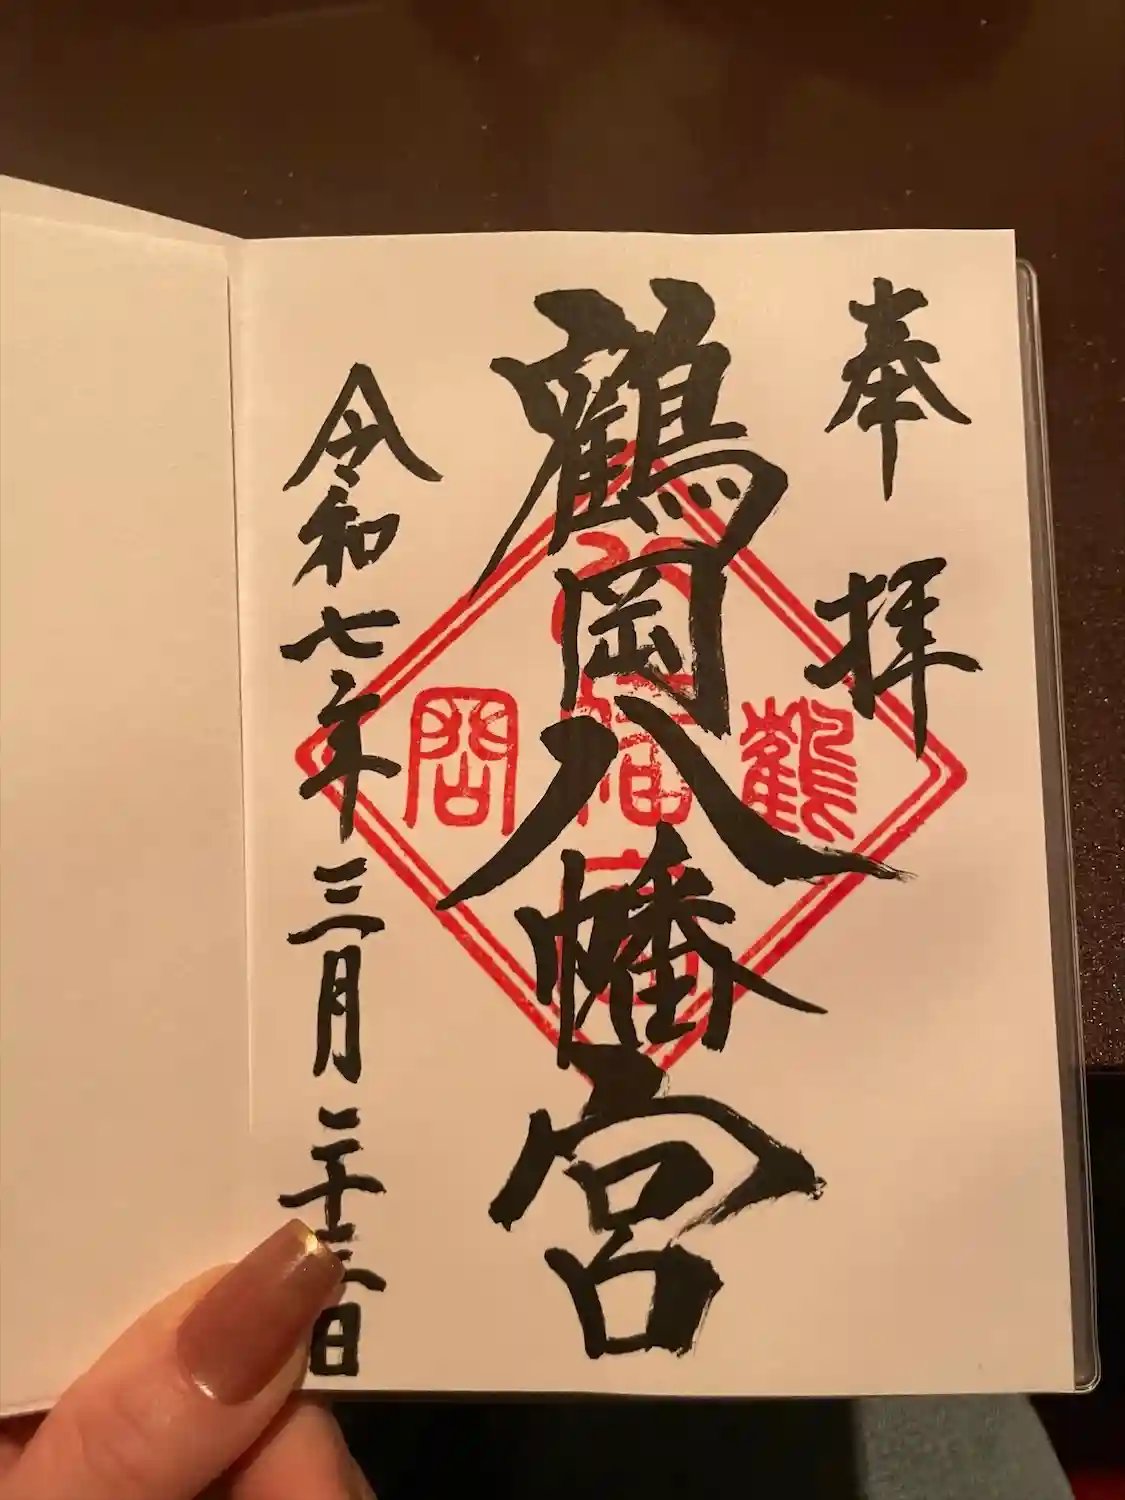 奉拝
鶴岡八幡宮
令和七年三月二十三日
鶴
岡